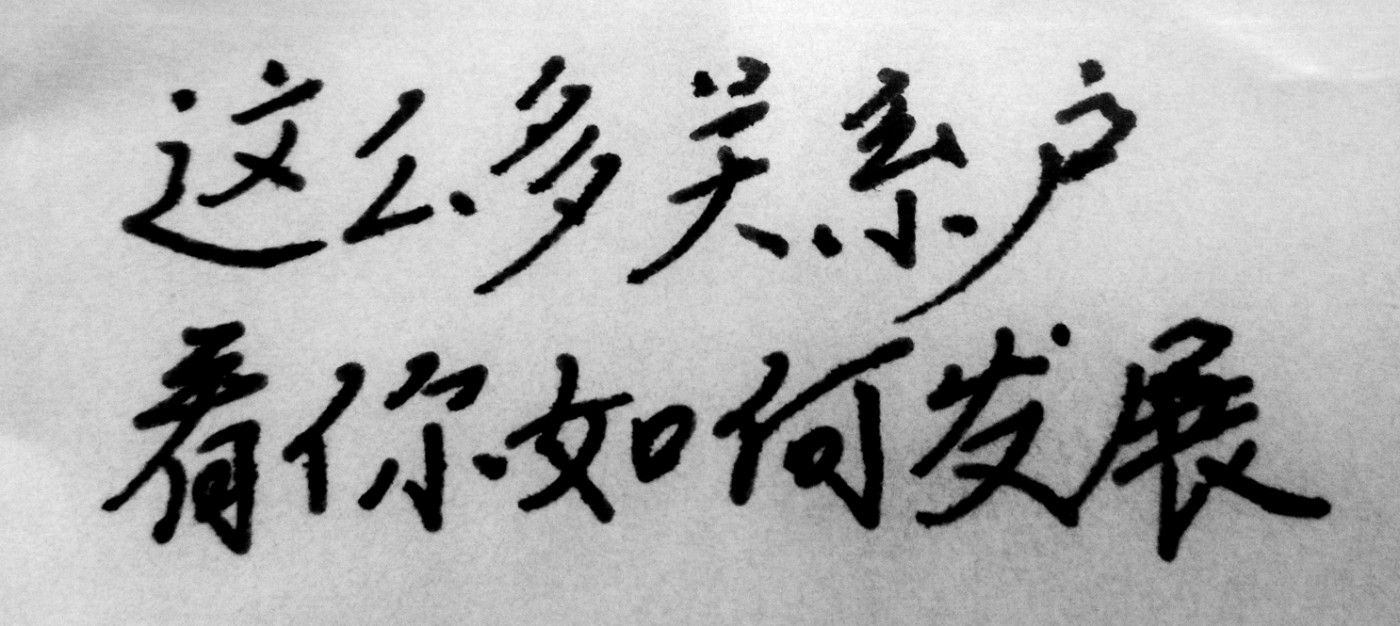 这么多关系户
看你如何发展